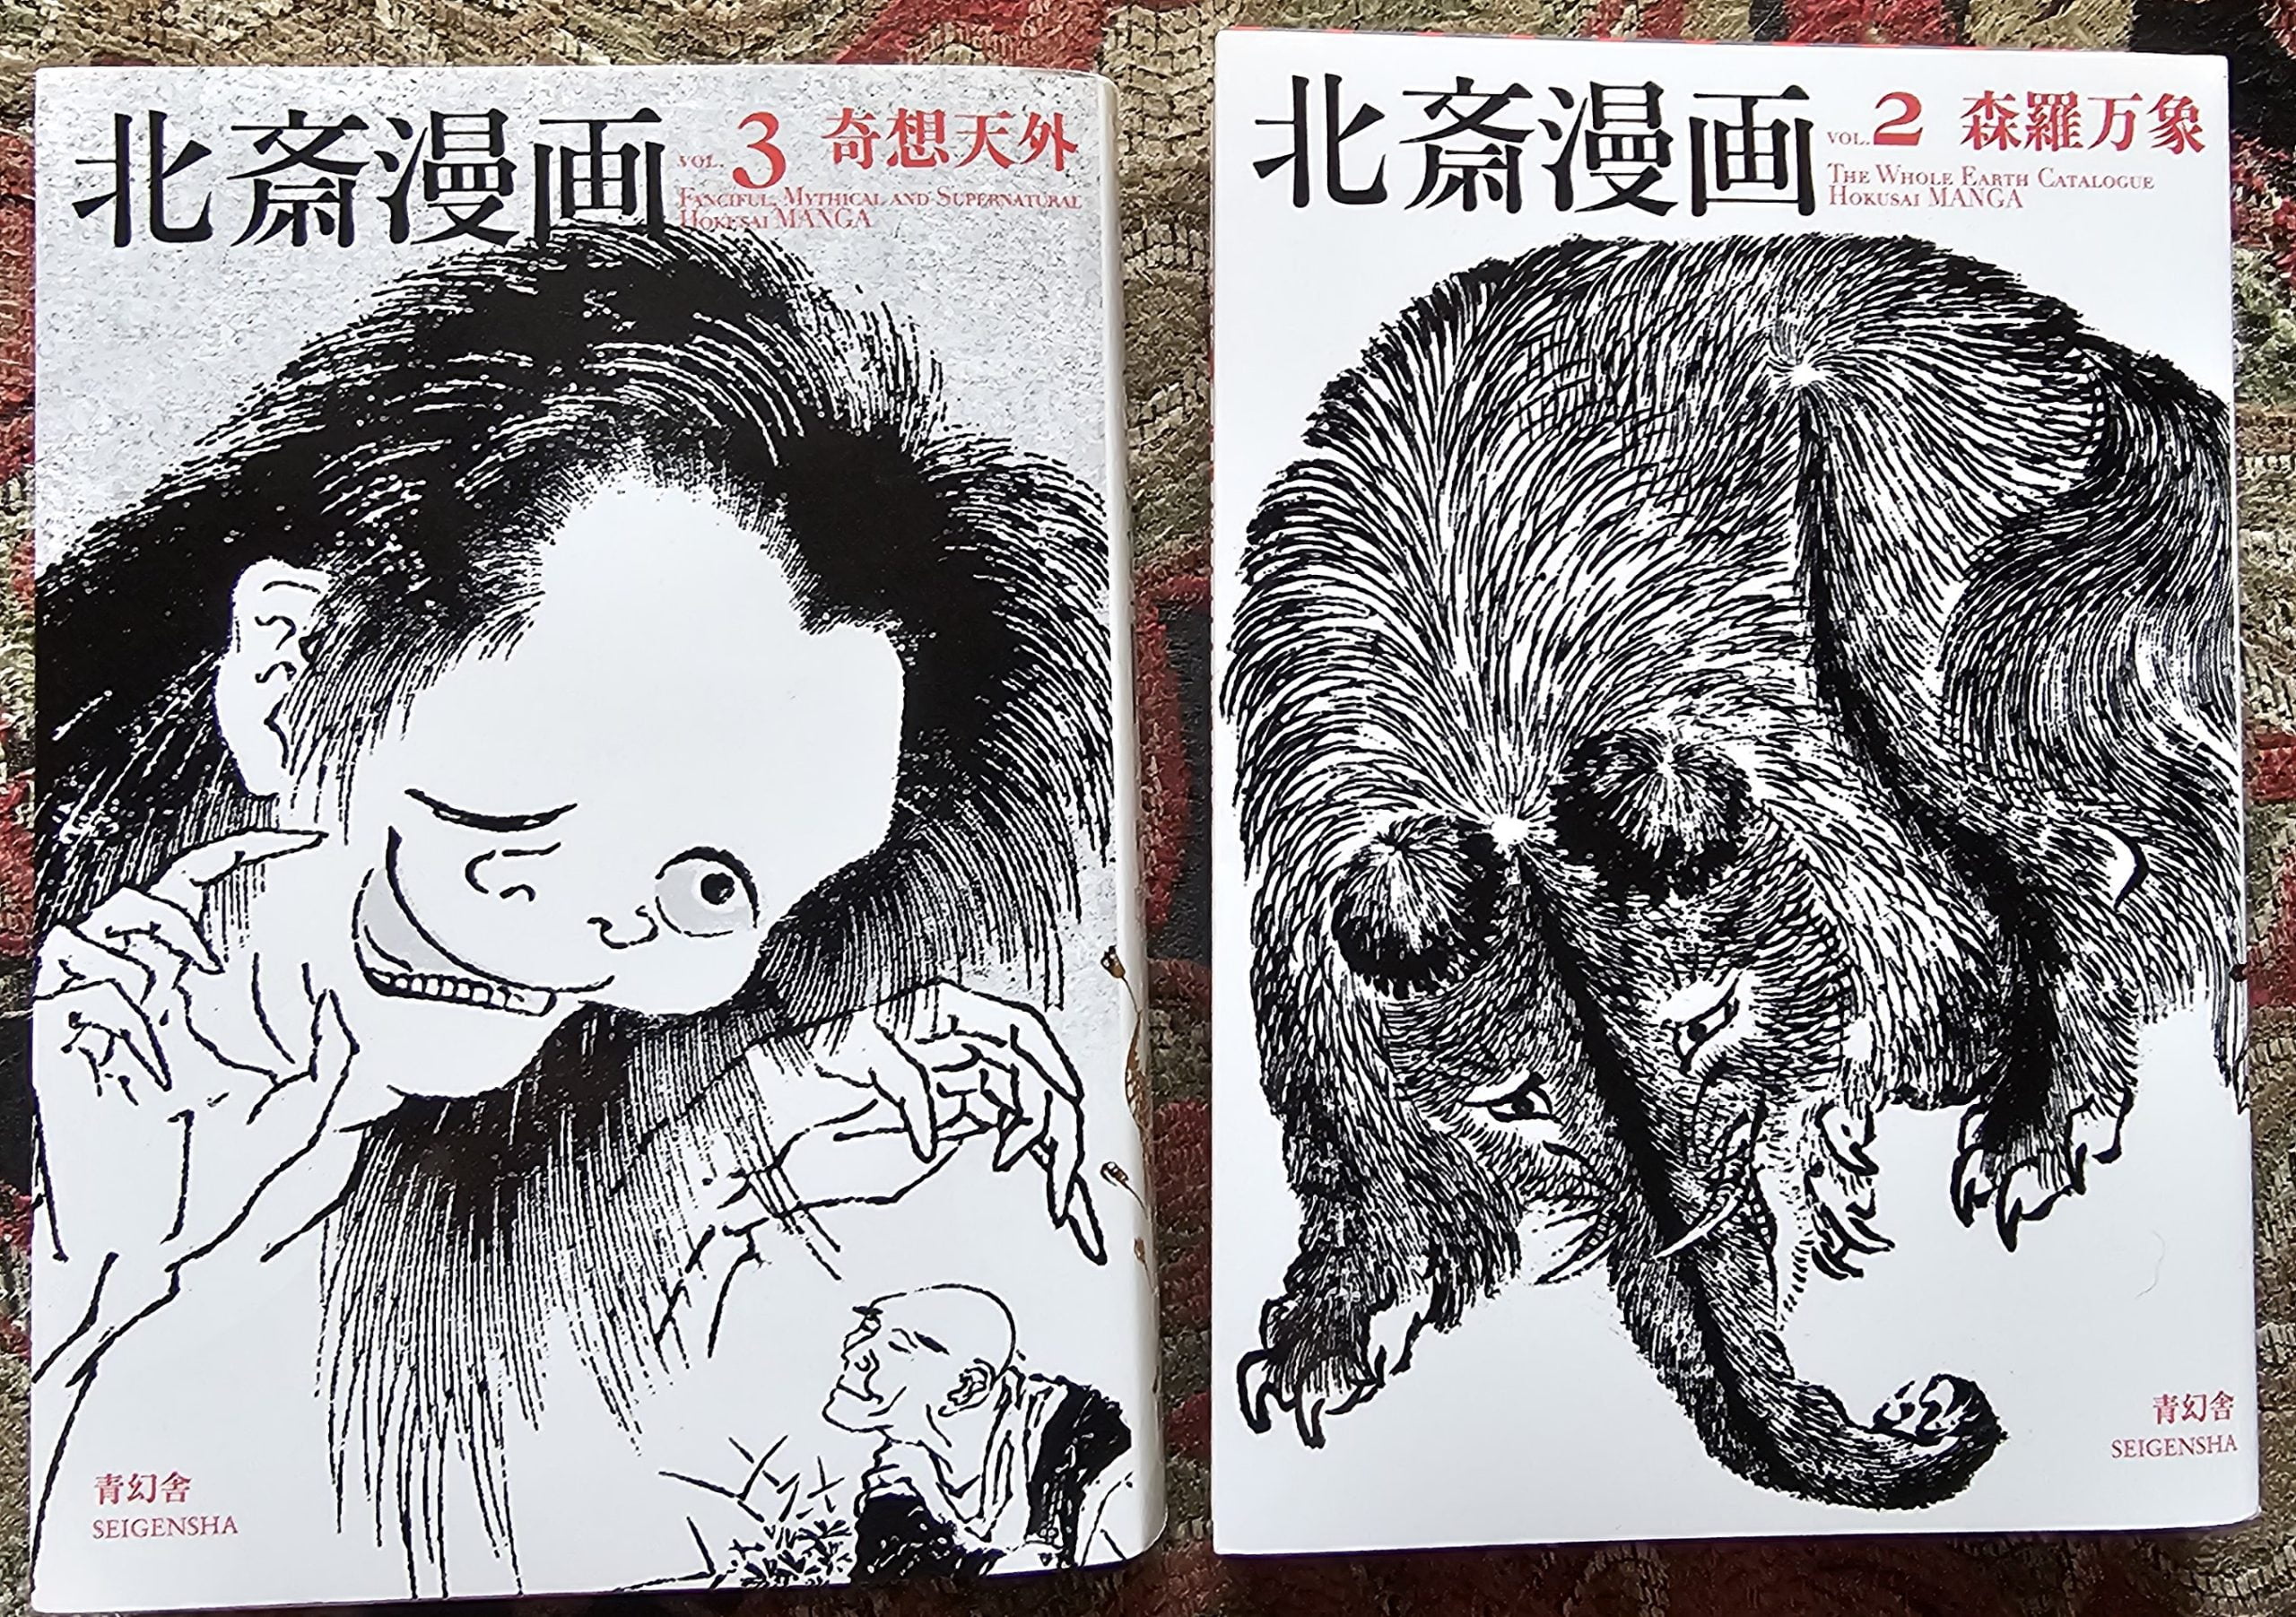 北斎漫画 VOL. 3 奇想天外
FANCIFUL, MYTHICAL AND SUPERNATURAL
HOKUSAI MANGA
青幻舎
SEIGENSHA
北斎漫画 VOL. 2 森羅万象
THE WHOLE EARTH CATALOGUE
HOKUSAI MANGA
青幻舎
SEIGENSHA